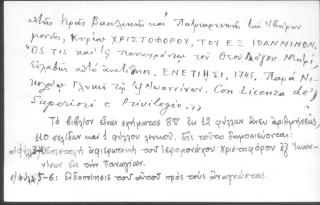 τῆς Ἱερᾶς Βασιλικῆς καὶ Πατριαρχικῆς τῶν Ἰβήρων
μονῆς, Κυρίου ΧΡΙΣΤΟΦΟΡΟΥ, ΤΟΥ ΕΞ ΙΩΑΝΝΙΝΩΝ.
Ὅς τις καὶ τῇ πανυχράντῳ τοῦ Θεοῦ Λόγου Μητρὶ,
εὐλαβῶς αὐτὸ ἀνατίθησι. ΕΝΕΤΙΗΣΙ, 1745. Παρὰ Νι-
κολάῳ Γλυκεῖ τῷ ἐξ Ἰωαννίνων. Con Licenza de'
Superiori e Privilegio.»
Τὸ βιβλίον εἶναι σχήματος 8ον ἐκ 12 φύλλων ἄνευ ἀριθμήσεως,
110 σελίδων καὶ 1 φύλλου λευκοῦ. Εἰς τοῦτο δημοσιεύονται:
Ἐπιστολὴ ἀφιερωτικὴ τοῦ Ἱερομονάχου Χριστοφόρου ἐξ Ἰωαν-
νίνων εἰς τὴν Παναγίαν.
5-6: Εἰδοποίησις τοῦ αὐτοῦ πρὸς τοὺς ἀναγνώστας.